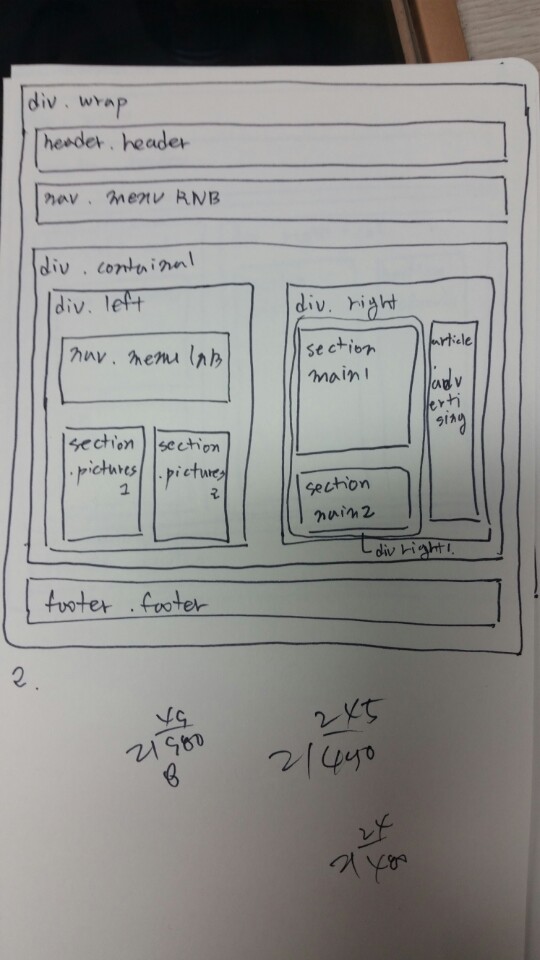 div.wrap
header.header
nav. menu RNB
div.containal
div.left
nav. menu LNB
section
.pictures
1
section
.pictures
2
div. right
section
main1
section
main2
article
.adv
erti
sing
div right1.
footer.footer
2.
49
2|980
8
245
2|490
24
2|480